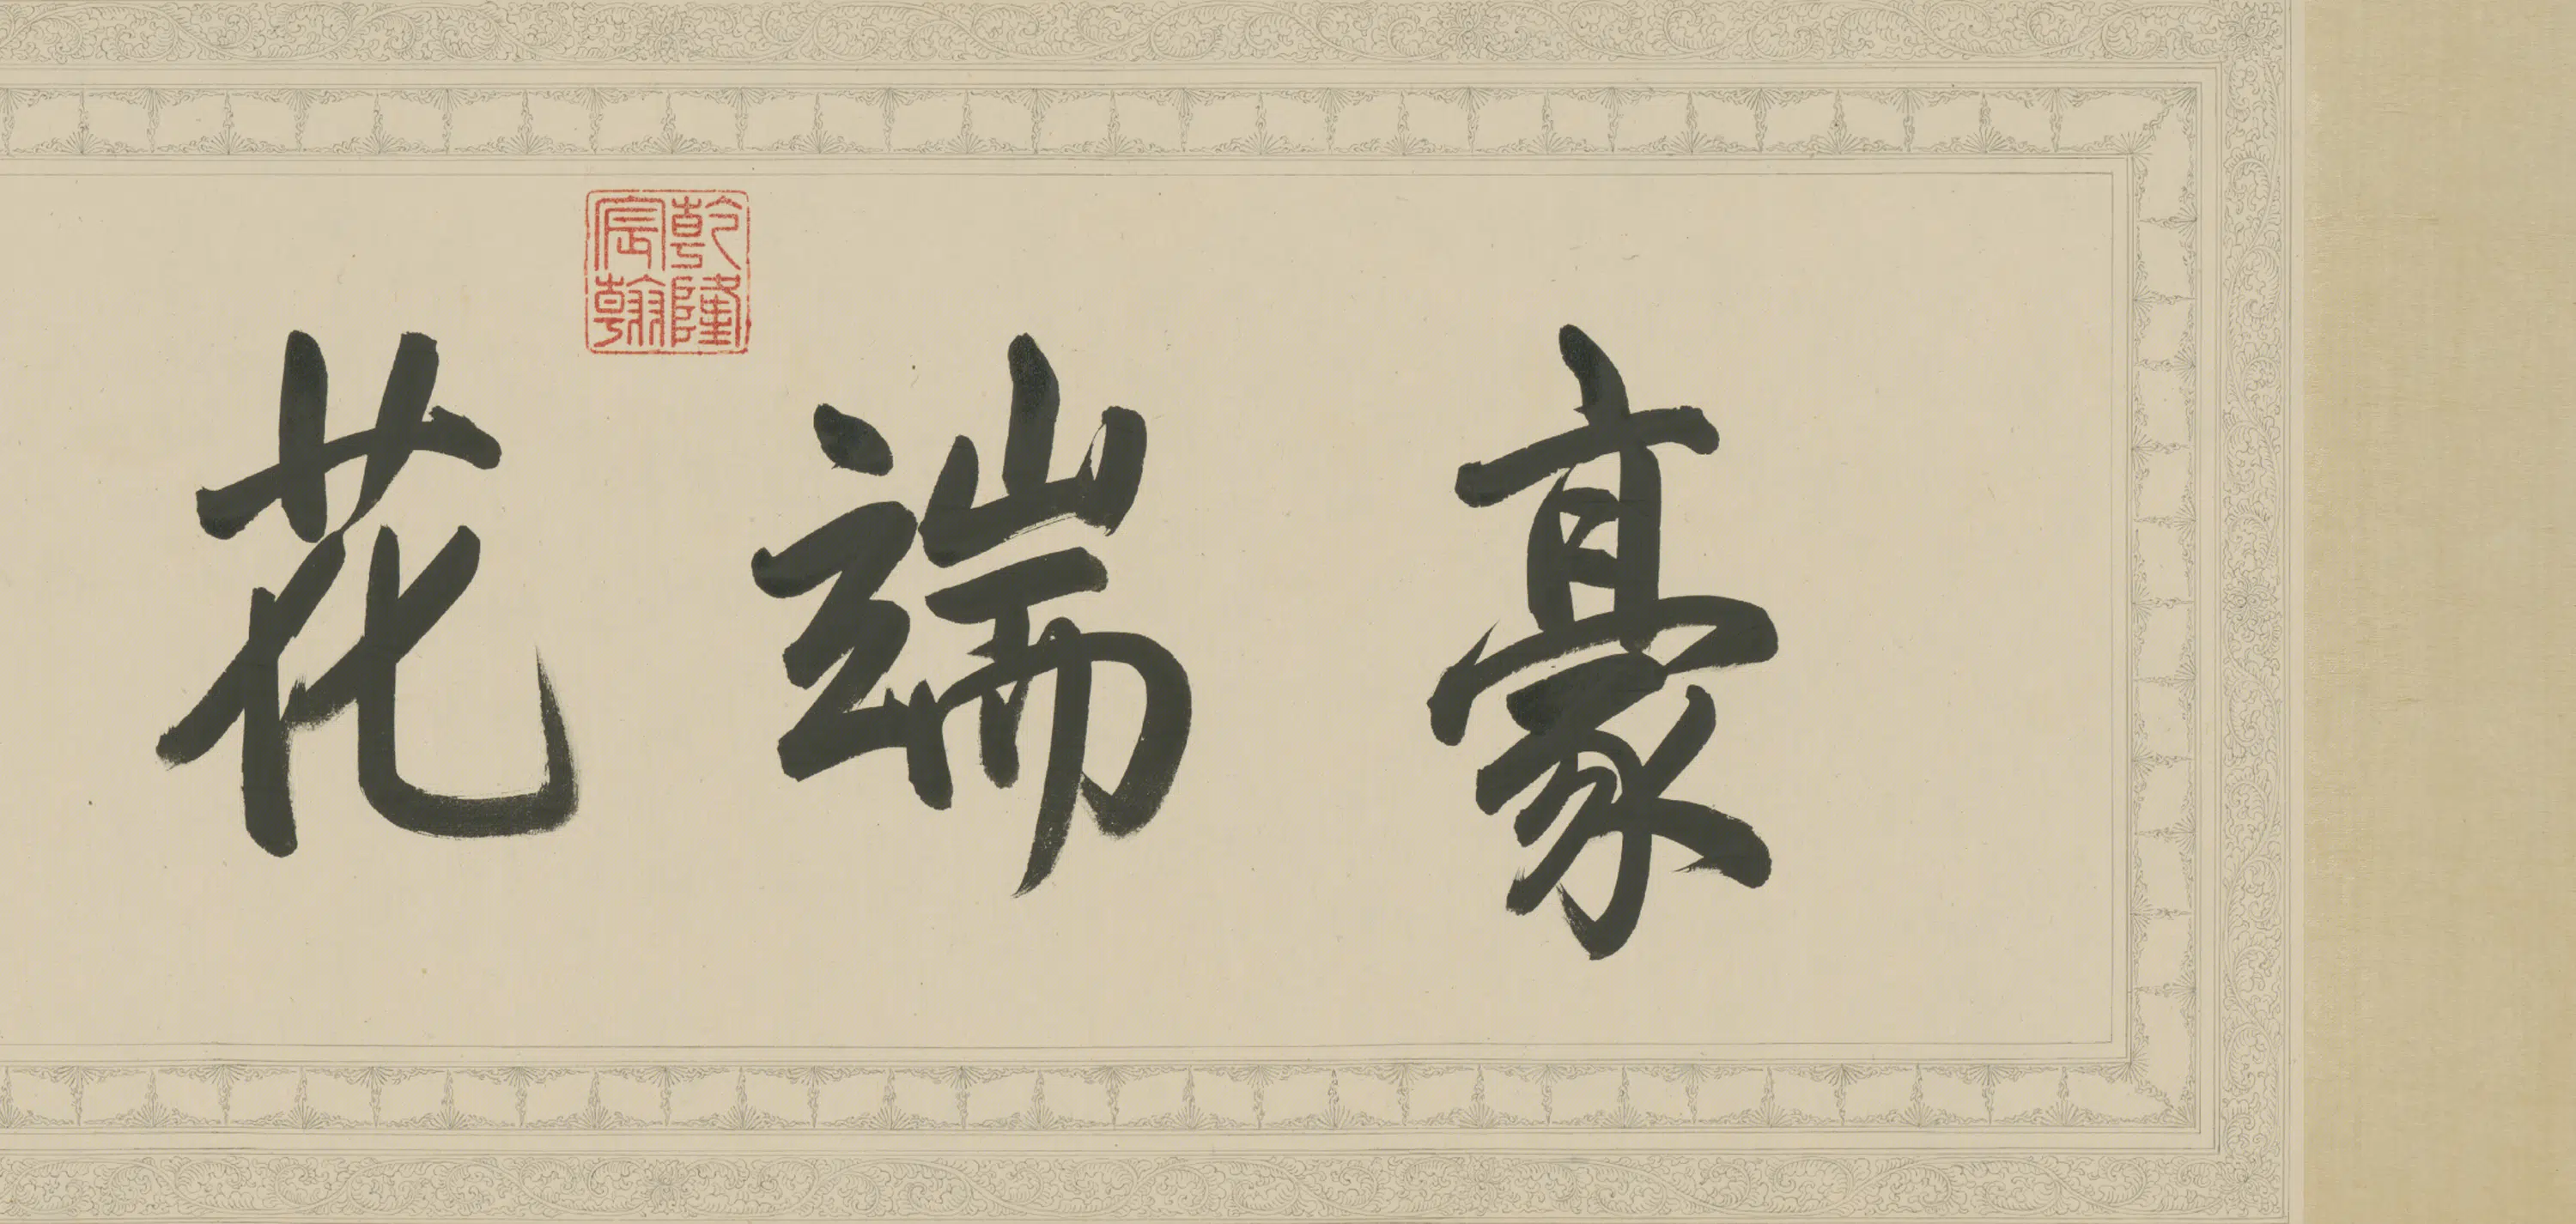 豪端花
乾隆宸翰